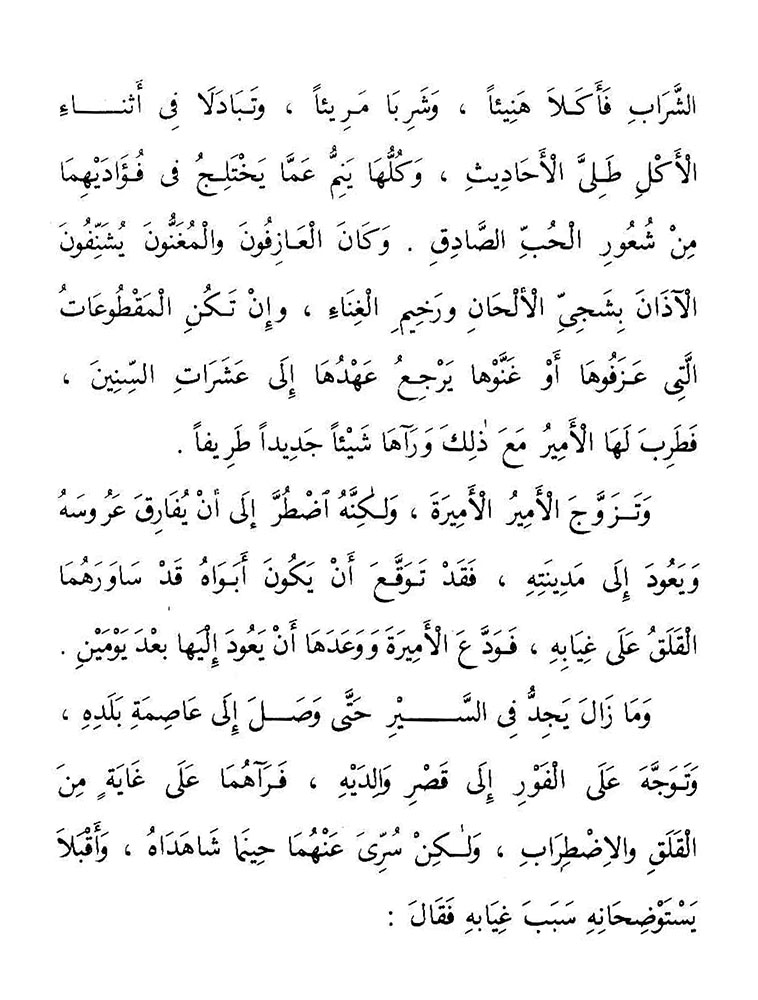 الشَّرَابِ فَأَكَلاَ هَنِيئاً ، وَشَرِبَا مَرِيئاً ، وتَبَادَلَا فِى أَثنـــاءِ
الْأَكْلِ طَلِىَّ الْأَحَادِيثِ ، وَكُلُّهَا يَنِمُّ عَمَّا يَخْتَلِجُ فى فُؤَادَيْهِمَا
مِنْ شُعُورِ الْحُبِّ الصَّادِقِ . وَكَانَ الْعَازِفُونَ والْمُغَنُّونَ يُشَنِّفُونَ
الْآذَانَ بِشَجِىِّ الْأَلْحَانِ ورَخِيمِ الْغِنَاءِ ، وإِنْ تَكُنِ الْمَقْطُوعَاتُ
الَّتِى عَزَفُوهَا أَوْ غَنَّوْها يَرْجِعُ عَهْدُهَا إِلَى عَشَرَاتِ السِّنِينَ ،
فَطَرِبَ لَهَا الْأَمِيرُ مَعَ ذٰلِكَ وَرَآهَا شَيْئاً جَدِيداً طَرِيفاً .
وَتَزَوَّجَ الْأَمِيرُ الْأَمِيرَةَ ، وَلٰكِنَّهُ ٱضْطُرَّ إلَى أنْ يُفَارِقَ عَرُوسَهُ
وَيَعُودَ إِلَى مَدِينَتِهِ ، فَقَدْ تَوَقَّعَ أَنْ يَكُونَ أَبَوَاهُ قَدْ سَاوَرَهُمَا
الْقَلَقُ عَلَى غِيَابِهِ ، فَوَدَّعَ الْأَمِيرَةَ وَوَعَدَهَا أَنْ يَعُودَ إِلَيْها بعْدَ يَوْمَيْنِ .
وَمَا زَالَ يَجِدُّ فِى السَّـــيْرِ حَتَّى وَصَلَ إِلَى عَاصِمَةِ بَلَدِهِ ،
وَتَوَجَّهَ عَلَى الْفَوْرِ إِلَى قَصْرِ وَالِدَيْهِ ، فَرَآهُمَا عَلَى غَايَةٍ مِنَ
الْقَلَقِ والاِضْطِرَابِ ، وَلٰكِنْ سُرِّىَ عَنْهُمَا حِينَمَا شَاهَدَاهُ ، وَأَقْبَلاَ
يَسْتَوْضِحَانِهِ سَبَبَ غِيَابهِ فَقَالَ :